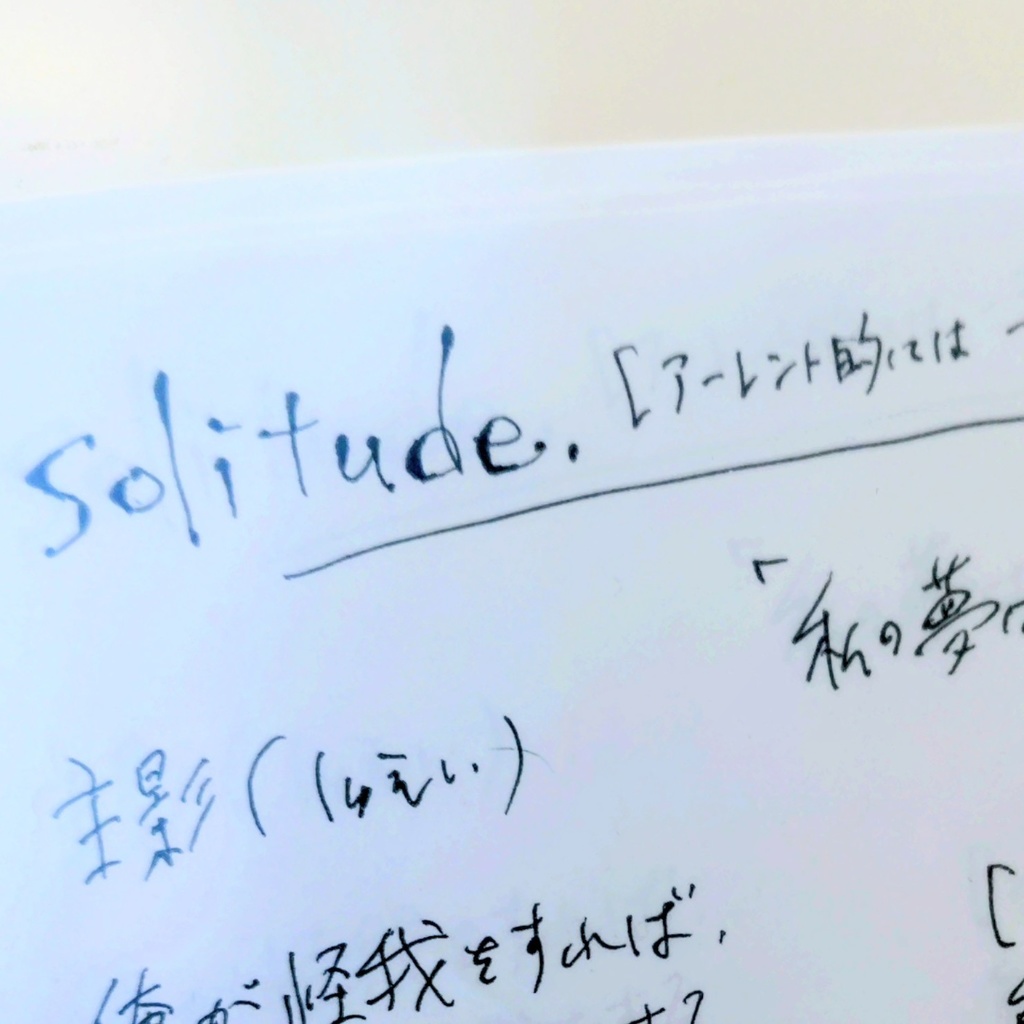 solitude. [アーレント的には
「私の夢
主影(しゅえい)
俺が怪我をすれば,
[